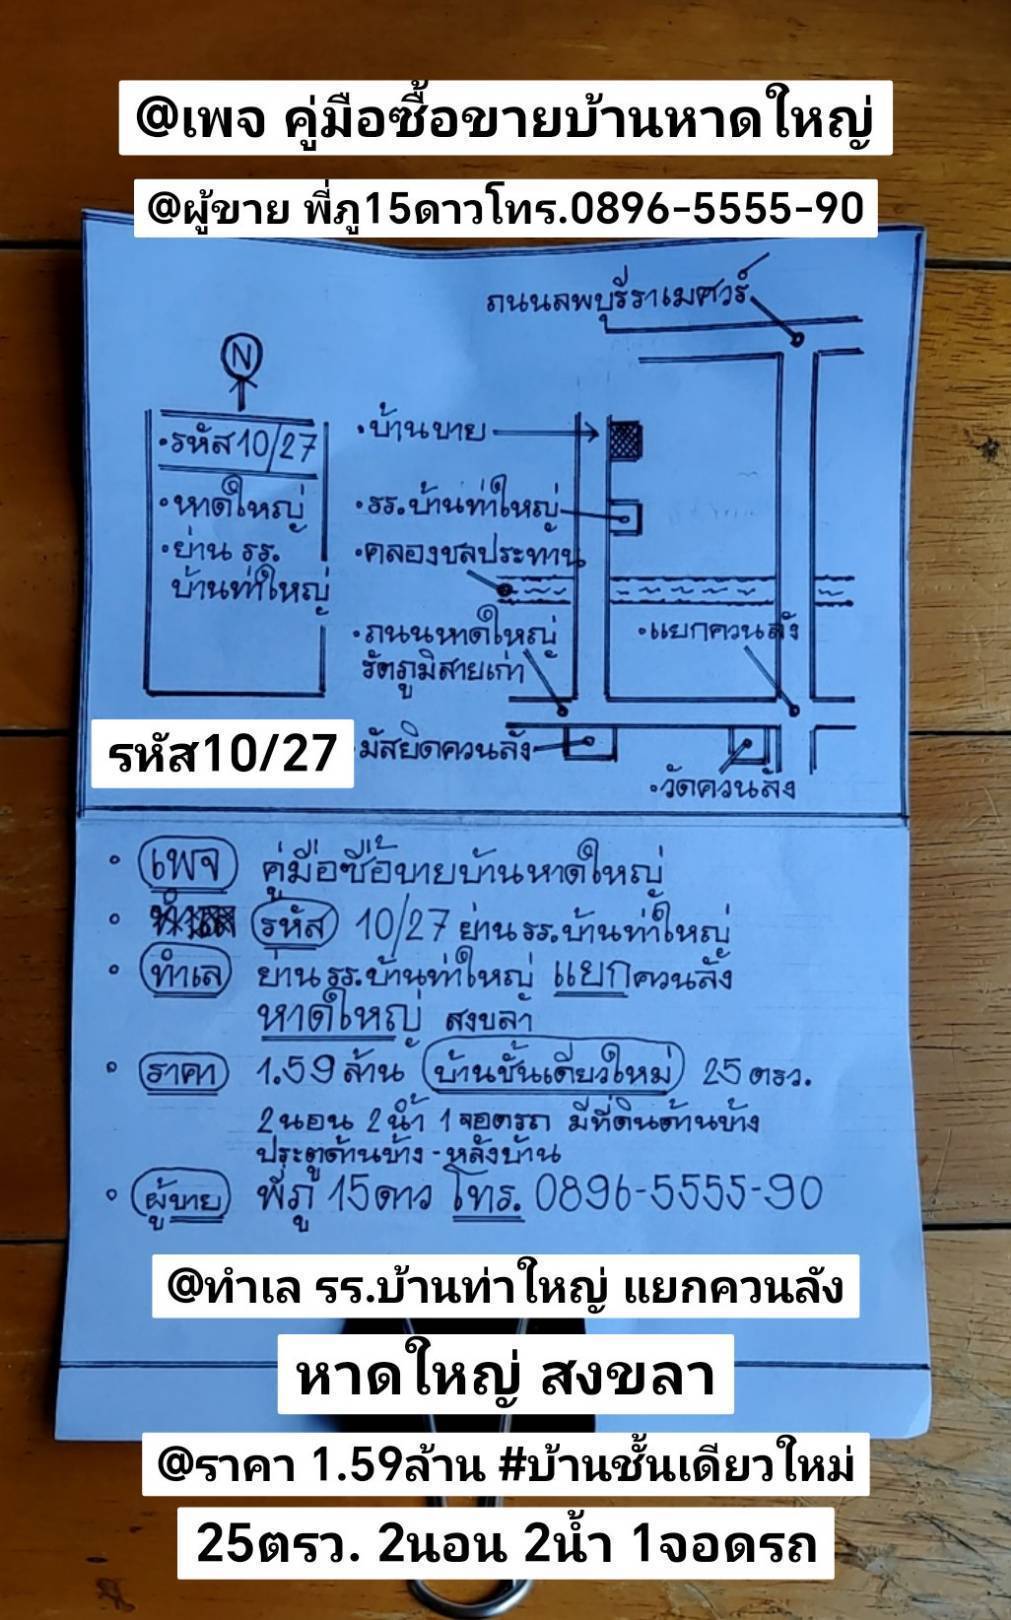 @เพจ คู่มือซื้อขายบ้านหาดใหญ่
@ผู้ขาย พี่ภู15ดาวโทร.0896-5555-90
ถนนลพบุรีราเมศวร์
N
•รหัส10/27
•หาดใหญ่
•ย่าน รร.
บ้านท่าใหญ่
•บ้านขาย
•รร.บ้านท่าใหญ่
•คลองชลประทาน
•ถนนหาดใหญ่
รัตภูมิสายเก่า
•แยกควนลัง
รหัส10/27
•มัสยิดควนลัง
•วัดควนลัง
• เพจ คู่มือซื้อขายบ้านหาดใหญ่
• รหัส 10/27 ย่านรร.บ้านท่าใหญ่
• ทำเล ย่านรร.บ้านท่าใหญ่ แยกควนลัง
หาดใหญ่ สงขลา
• ราคา 1.59 ล้าน บ้านชั้นเดียวใหม่ 25 ตรว.
2 นอน 2 น้ำ 1 จอดรถ มีที่ดินด้านข้าง
ประตูด้านข้าง - หลังบ้าน
• ผู้ขาย พี่ภู 15 ดาว โทร. 0896-5555-90
@ทำเล รร.บ้านท่าใหญ่ แยกควนลัง
หาดใหญ่ สงขลา
@ราคา 1.59ล้าน #บ้านชั้นเดียวใหม่
25ตรว. 2นอน 2น้ำ 1จอดรถ